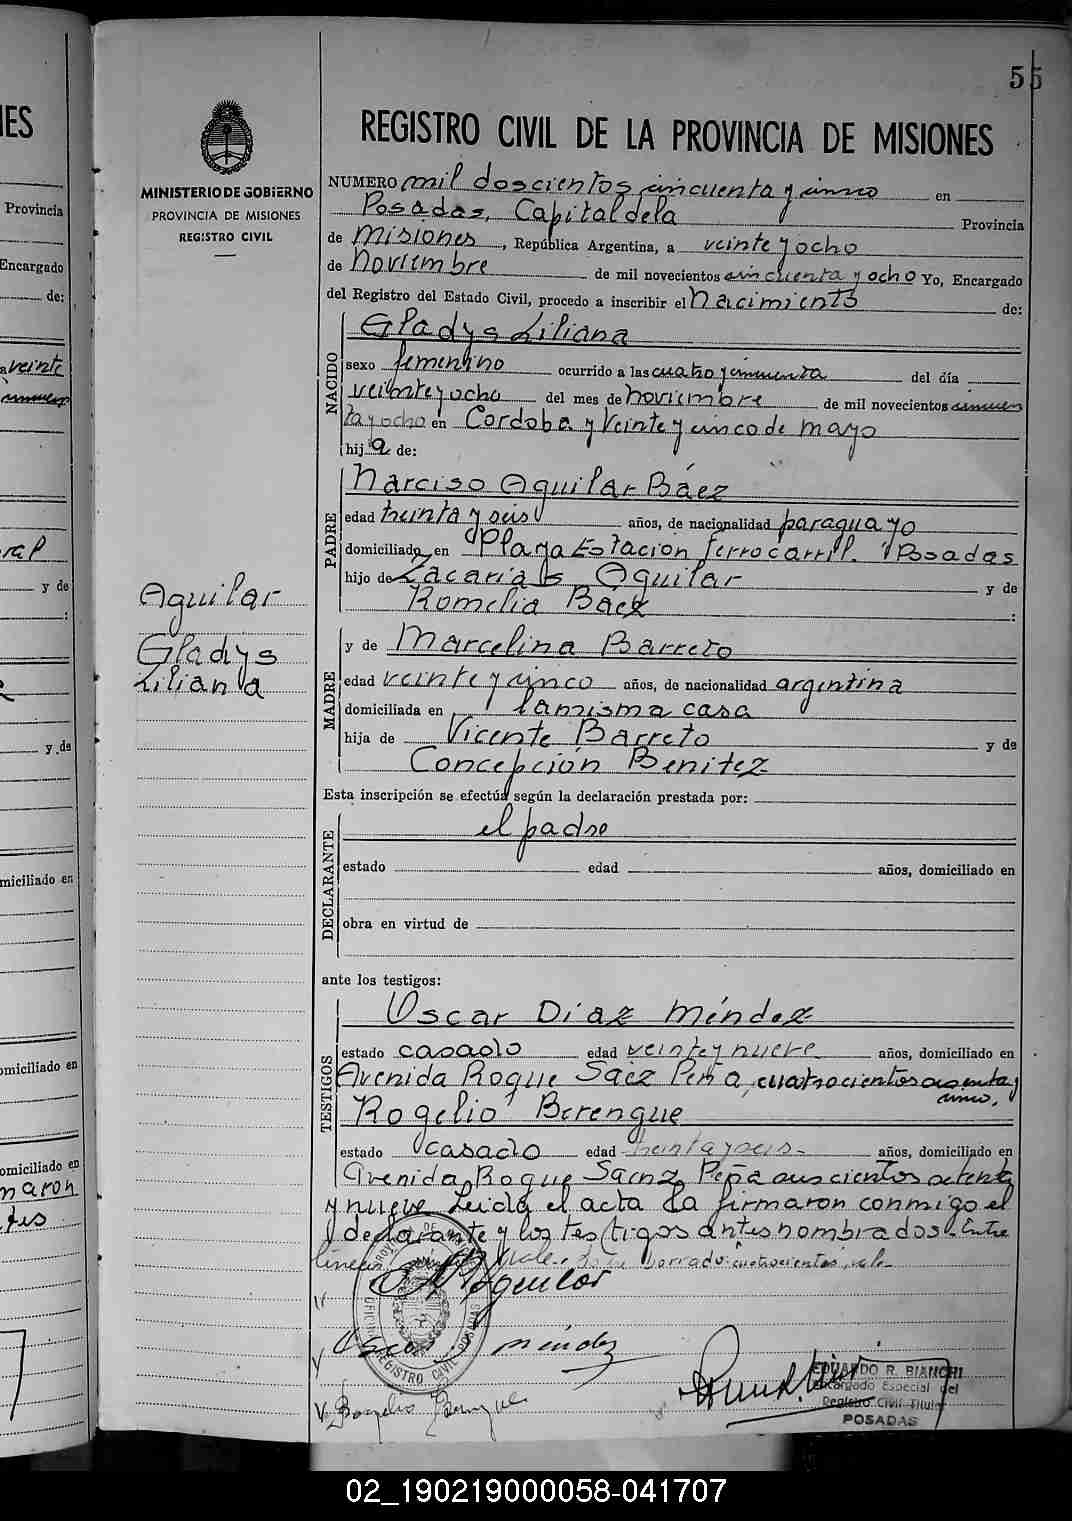 55
REGISTRO CIVIL DE LA PROVINCIA DE MISIONES
MINISTERIO DE GOBIERNO
PROVINCIA DE MISIONES
REGISTRO CIVIL
NUMERO mil doscientos cincuenta y cinco en
Posadas, Capital dela Provincia
de Misiones, República Argentina, a veinte y ocho
de noviembre de mil novecientos cincuenta y ocho Yo, Encargado
del Registro del Estado Civil, procedo a inscribir el nacimiento de:
NACIDO
Gladys Liliana
sexo femenino ocurrido a las cuatro y cincuenta del día
veinte y ocho del mes de noviembre de mil novecientos cincuen
ta y ocho en Cordoba y Veinte y cinco de mayo
hija de:
PADRE
Narciso Aguilar Báez
edad treinta y seis años, de nacionalidad paraguayo
domiciliado en Playa Estacion ferrocarril. Posadas
hijo de Zacarias Aguilar y de
Romelia Báez :
Aguilar
Gladys
Liliana
MADRE
y de Marcelina Barreto
edad veinte y cinco años, de nacionalidad argentina
domiciliada en la misma casa
hija de Vicente Barreto y de
Concepción Benitez
Esta inscripción se efectúa según la declaración prestada por:
DECLARANTE
el padre
estado edad años, domiciliado en
obra en virtud de
ante los testigos:
TESTIGOS
Oscar Diaz Méndez
estado casado edad veinte y nueve años, domiciliado en
Avenida Roque Sáez Peña, cuatrocientos y
uno.
Rogelio Berengue
estado casado edad treinta y seis años, domiciliado en
Avenida Roque Saenz Peña seiscientos setenta
y nueve Leida el acta la firmaron conmigo el
declarante y los testigos antes nombrados. Entre
lineas vale. borrado: cuatrocientos, vale
EDUARDO R. BIANCHI
Encargado Especial del
Registro Civil Titular
POSADAS
02_190219000058-041707